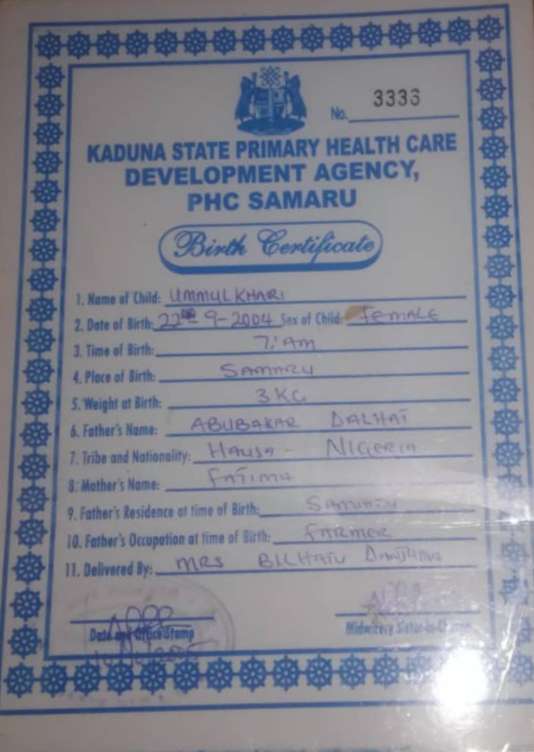 No. 3336
KADUNA STATE PRIMARY HEALTH CARE
DEVELOPMENT AGENCY,
PHC SAMARU
Birth Certificate
1. Name of Child: UMMUL KHAIRI
2. Date of Birth: 22nd-9-2004 Sex of Child: FEMALE
3. Time of Birth: 7:AM
4. Place of Birth: SAMARU
5. Weight at Birth: 3KG
6. Father's Name: ABUBAKAR DALHAT
7. Tribe and Nationality: HAUSA - NIGERIA
8. Mother's Name: FATIMA
9. Father's Residence at time of Birth: SAMARU
10. Father's Occupation at time of Birth: FARMER
11. Delivered By: MRS BILHATU
Date and Office Stamp
Midwifery Sister-in-Charge